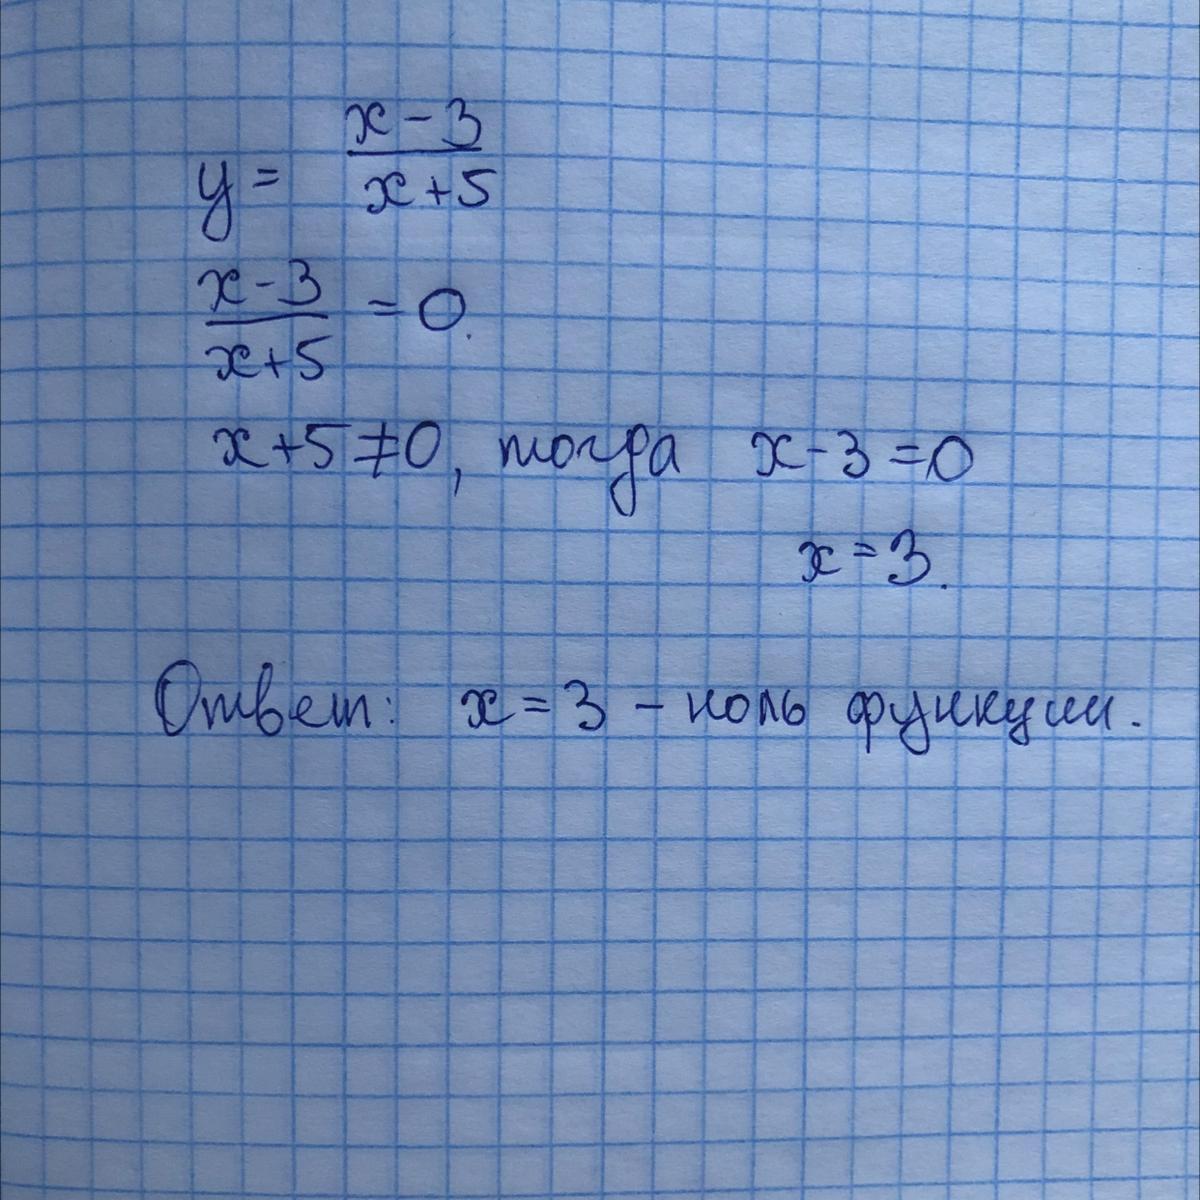 y = \frac{x-3}{x+5}
\frac{x-3}{x+5} = 0.
x+5≠0, тогда x-3=0
x=3.
Ответ: x=3 – ноль функции.